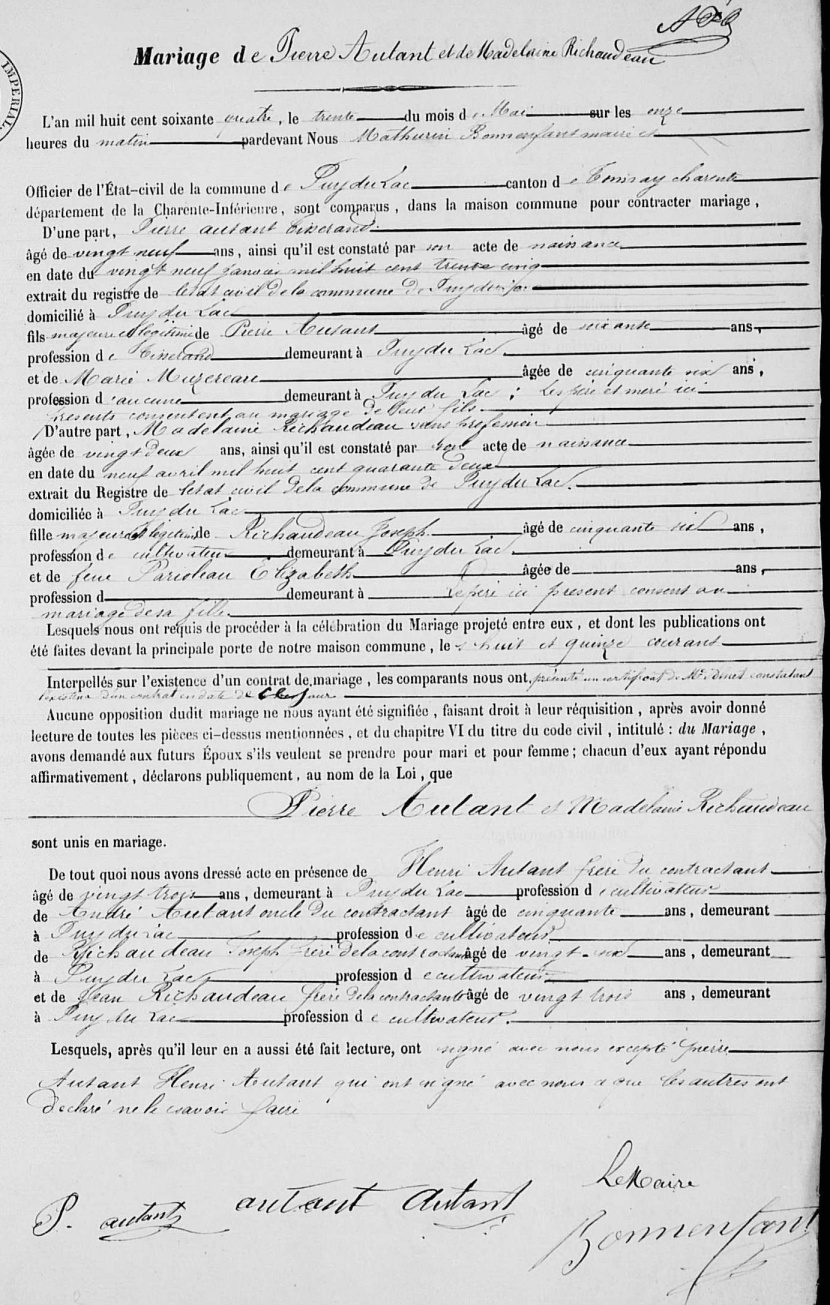 IMPERIAL.
Mariage de Pierre Autant et de Madelaine Richaudeau
L'an mil huit cent soixante quatre, le trente du mois de Mai sur les onze
heures du matin pardevant Nous Mathurin Bonnenfant maire et
Officier de l'État-civil de la commune de Puy du Lac canton de Tonnay charente
département de la Charente-Inférieure, sont comparus, dans la maison commune pour contracter mariage,
D'une part, Pierre autant tisserand
âgé de vingt neuf ans, ainsi qu'il est constaté par son acte de naissance
en date du vingt neuf janvier mil huit cent trente cinq
extrait du registre de letat civil de la commune de Puy du Lac
domicilié à Puy du Lac
fils majeur et légitime de Pierre Autant âgé de soixante ans,
profession de tisserand demeurant à Puy du Lac
et de Marie Muzereau âgée de cinquante six ans,
profession d'aucune demeurant à Puy du Lac ; les père et mere ici
presents consentent au mariage de leur fils
D'autre part, Madelaine Richaudeau sans profession
âgée de vingt deux ans, ainsi qu'il est constaté par son acte de naissance
en date du neuf avril mil huit cent quarante deux
extrait du Registre de letat civil de la commune de Puy du Lac.
domiciliée à Puy du Lac
fille majeure et légitime de Richaudeau Joseph âgé de cinquante six ans,
profession de cultivateur demeurant à Puy du Lac
et de feue Elizabeth âgée de ans,
profession d demeurant à Le père ici present consent au
mariage de sa fille
Lesquels nous ont requis de procéder à la célébration du Mariage projeté entre eux, et dont les publications ont
été faites devant la principale porte de notre maison commune, les huit et quinze courant
Interpellés sur l'existence d'un contrat de mariage, les comparants nous ont, présenté un certificat de Me constatant
l'existence d'un contrat en date de ce jour
Aucune opposition dudit mariage ne nous ayant été signifiée, faisant droit à leur réquisition, après avoir donné
lecture de toutes les pièces ci-dessus mentionnées, et du chapitre VI du titre du code civil, intitulé : du Mariage,
avons demandé aux futurs Époux s'ils veulent se prendre pour mari et pour femme ; chacun d'eux ayant répondu
affirmativement, déclarons publiquement, au nom de la Loi, que
Pierre Autant et Madelaine Richaudeau
sont unis en mariage.
De tout quoi nous avons dressé acte en présence de Henri Autant frere du contractant
âgé de vingt trois ans, demeurant à Puy du Lac profession de cultivateur
de André Autant oncle du contractant âgé de cinquante ans, demeurant
à Puy du Lac profession de cultivateur
de Richaudeau Joseph frere de la contractante âgé de vingt six ans, demeurant
à Puy du Lac profession de cultivateur
et de Jean Richaudeau frere de la contractante âgé de vingt trois ans, demeurant
à Puy du Lac profession de cultivateur.
Lesquels, après qu'il leur en a aussi été fait lecture, ont signé avec nous excepté pierre
Autant Henri Autant qui ont signé avec nous que les autres ont
declaré ne le savoir faire
Le Maire
P. autant autant Autant
Bonnenfant